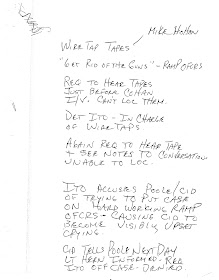 MIKE MOHAN
WIRE TAP TAPES
"GET RID OF THE GUNS" - RAMP OFCRS
REQ TO HEAR TAPES
JUST BEFORE COHAN
I/V. CAN'T LOC THEM.
DET ITO - IN CHARGE
OF WIRE-TAPS
AGAIN REQ TO HEAR TAPE
+ SEE NOTES TO CONVERSATION
UNABLE TO LOC.
ITO ACCUSES POOLE/CID
OF TRYING TO PUT CASE
ON HARD WORKING RAMP
OFCRS - CAUSING CID TO
BECOME VISIBLY UPSET
CRYING.
CID TELLS POOLE NEXT DAY
LT HERN INFORMED - REQ
ITO OFF CASE - DENIED.